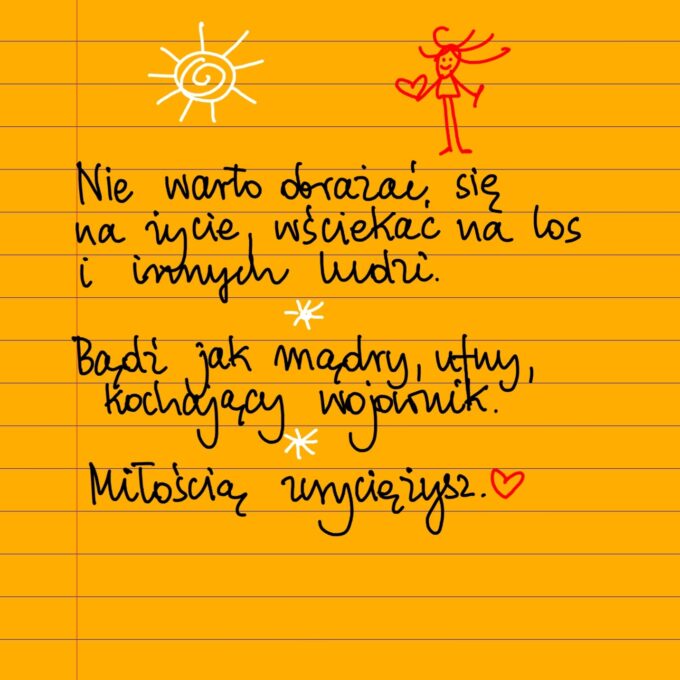 Nie warto obrażać się
na życie, wściekać na los
i innych ludzi.
Bądź jak mądry, ufny,
kochający wojownik.
Miłością zwyciężysz.